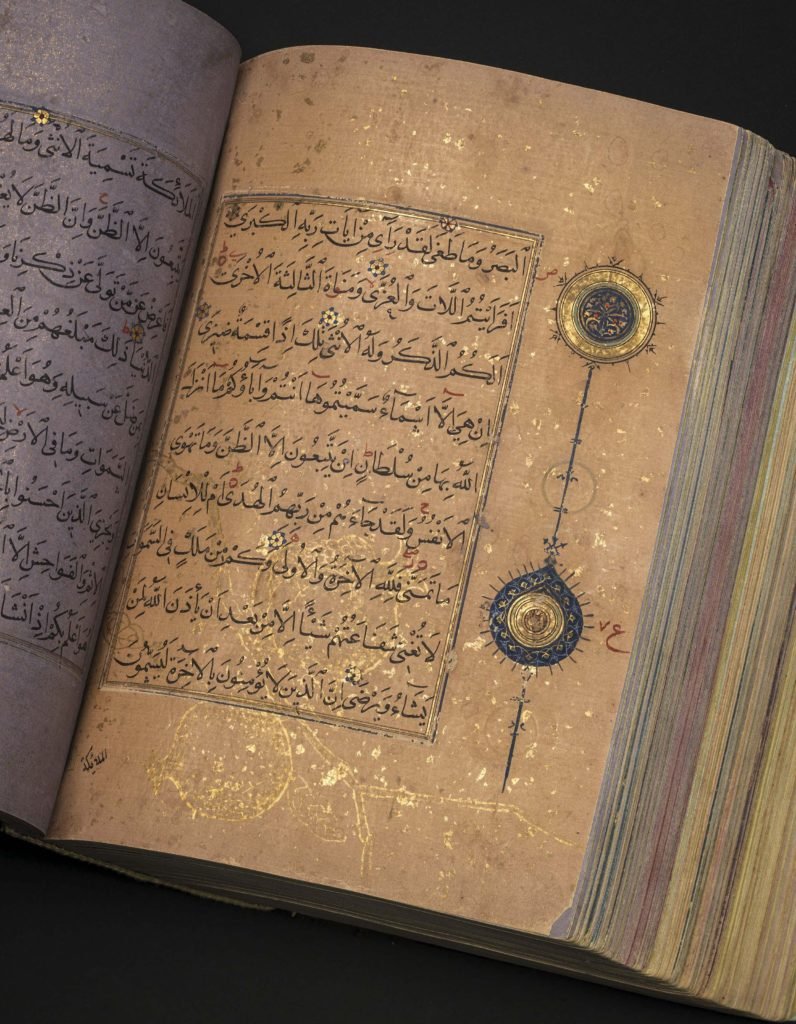 اَلْبَصَرُ وَمَا طَغٰى لَقَدْ رَآى مِنْ اٰيَاتِ رَبِّهِ الْكُبْرٰى
اَفَرَاَيْتُمُ اللَّاتَ وَالْعُزّٰى وَمَنَاةَ الثَّالِثَةَ الْاُخْرٰى
اَلَكُمُ الذَّكَرُ وَلَهُ الْاُنْثٰى تِلْكَ اِذًا قِسْمَةٌ ضِيزٰى
اِنْ هِيَ اِلَّا اَسْمَاءٌ سَمَّيْتُمُوهَا اَنْتُمْ وَاٰبَاؤُكُمْ مَا اَنْزَلَ
اللهُ بِهَا مِنْ سُلْطَانٍ اِنْ يَتَّبِعُونَ اِلَّا الظَّنَّ وَمَا تَهْوَى
الْاَنْفُسُ وَلَقَدْ جَاءَهُمْ مِنْ رَبِّهِمُ الْهُدٰى اَمْ لِلْاِنْسَانِ
مَا تَمَنّٰى فَلِلّٰهِ الْاٰخِرَةُ وَالْاُولٰى وَكَمْ مِنْ مَلَكٍ فِي السَّمٰوَاتِ
لَا تُغْنِي شَفَاعَتُهُمْ شَيْئًا اِلَّا مِنْ بَعْدِ اَنْ يَأْذَنَ اللهُ لِمَنْ
يَشَاءُ وَيَرْضٰى اِنَّ الَّذِينَ لَا يُؤْمِنُونَ بِالْاٰخِرَةِ لَيُسَمُّونَ
الملائكة
ع ٧
الْمَلَائِكَةَ تَسْمِيَةَ الْاُنْثٰى وَمَا لَهُمْ
اِلَّا الظَّنَّ وَاِنَّ الظَّنَّ لَا
عَنْ مَنْ تَوَلّٰى عَنْ ذِكْرِنَا
الدُّنْيَا ذٰلِكَ مَبْلَغُهُمْ مِنَ
ضَلَّ عَنْ سَبِيلِهِ وَهُوَ اَعْلَمُ
السَّمٰوَاتِ وَمَا فِي الْاَرْضِ
وَيَجْزِيَ الَّذِينَ اَحْسَنُوا
الْاِثْمِ وَالْفَوَاحِشَ اِلَّا
هُوَ اَعْلَمُ بِكُمْ اِذْ